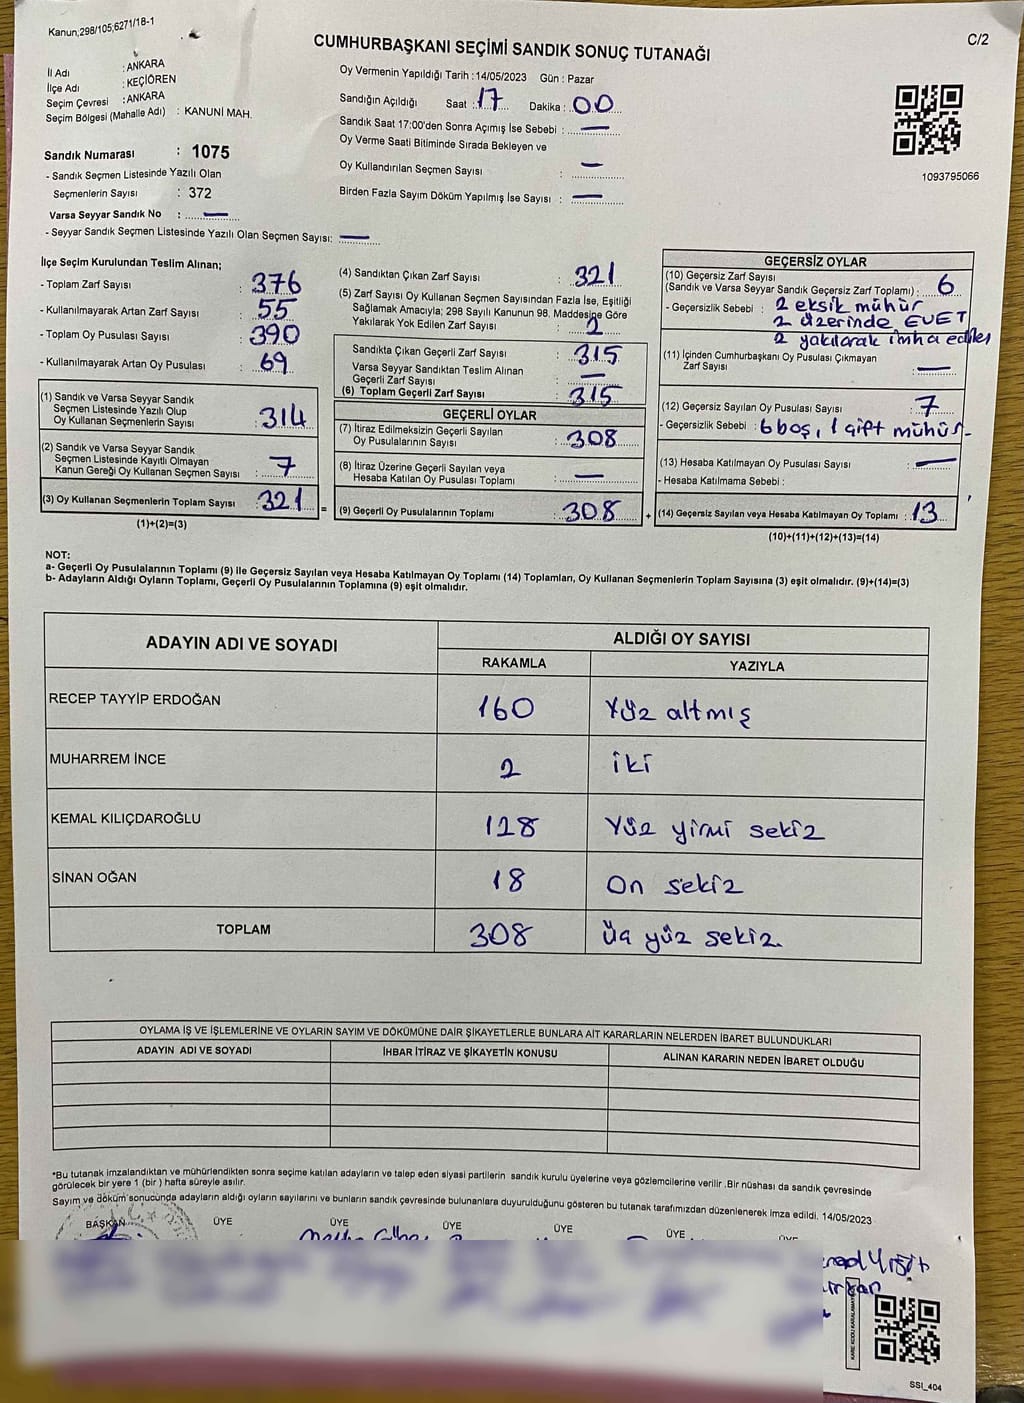 Kanun,298/105;6271/18-1
C/2
CUMHURBAŞKANI SEÇİMİ SANDIK SONUÇ TUTANAĞI
İl Adı : ANKARA
İlçe Adı : KEÇİÖREN
Seçim Çevresi : ANKARA
Seçim Bölgesi (Mahalle Adı) : KANUNİ MAH.
Oy Vermenin Yapıldığı Tarih :14/05/2023 Gün : Pazar
Sandığın Açıldığı Saat : 17 Dakika : 00
Sandık Saat 17:00'den Sonra Açımış İse Sebebi : —
Oy Verme Saati Bitiminde Sırada Bekleyen ve
Oy Kullandırılan Seçmen Sayısı : —
Birden Fazla Sayım Döküm Yapılmış İse Sayısı : —
1093795066
Sandık Numarası : 1075
- Sandık Seçmen Listesinde Yazılı Olan
Seçmenlerin Sayısı : 372
Varsa Seyyar Sandık No : —
- Seyyar Sandık Seçmen Listesinde Yazılı Olan Seçmen Sayısı: —
İlçe Seçim Kurulundan Teslim Alınan;
- Toplam Zarf Sayısı : 376
- Kullanılmayarak Artan Zarf Sayısı : 55
- Toplam Oy Pusulası Sayısı : 390
- Kullanılmayarak Artan Oy Pusulası : 69
(1) Sandık ve Varsa Seyyar Sandık
Seçmen Listesinde Yazılı Olup
Oy Kullanan Seçmenlerin Sayısı : 314
(2) Sandık ve Varsa Seyyar Sandık
Seçmen Listesinde Kayıtlı Olmayan
Kanun Gereği Oy Kullanan Seçmen Sayısı : 7
(3) Oy Kullanan Seçmenlerin Toplam Sayısı : 321 =
(1)+(2)=(3)
(4) Sandıktan Çıkan Zarf Sayısı : 321
(5) Zarf Sayısı Oy Kullanan Seçmen Sayısından Fazla İse, Eşitliği
Sağlamak Amacıyla; 298 Sayılı Kanunun 98. Maddesine Göre
Yakılarak Yok Edilen Zarf Sayısı : 2
Sandıkta Çıkan Geçerli Zarf Sayısı : 315
Varsa Seyyar Sandıktan Teslim Alınan
Geçerli Zarf Sayısı : —
(6) Toplam Geçerli Zarf Sayısı : 315
GEÇERLİ OYLAR
(7) İtiraz Edilmeksizin Geçerli Sayılan
Oy Pusulalarının Sayısı : 308
(8) İtiraz Üzerine Geçerli Sayılan veya
Hesaba Katılan Oy Pusulası Toplamı : —
(9) Geçerli Oy Pusulalarının Toplamı : 308 +
GEÇERSİZ OYLAR
(10) Geçersiz Zarf Sayısı
(Sandık ve Varsa Seyyar Sandık Geçersiz Zarf Toplamı) : 6
- Geçersizlik Sebebi : 2 eksik mühür
2 üzerinde EVET
2 yakılarak imha edilen
(11) İçinden Cumhurbaşkanı Oy Pusulası Çıkmayan
Zarf Sayısı : —
(12) Geçersiz Sayılan Oy Pusulası Sayısı : 7
- Geçersizlik Sebebi : 6 boş, 1 çift mühür-
(13) Hesaba Katılmayan Oy Pusulası Sayısı : —
- Hesaba Katılmama Sebebi :
(14) Geçersiz Sayılan veya Hesaba Katılmayan Oy Toplamı : 13
(10)+(11)+(12)+(13)=(14)
NOT:
a- Geçerli Oy Pusulalarının Toplamı (9) ile Geçersiz Sayılan veya Hesaba Katılmayan Oy Toplamı (14) Toplamları, Oy Kullanan Seçmenlerin Toplam Sayısına (3) eşit olmalıdır. (9)+(14)=(3)
b- Adayların Aldığı Oyların Toplamı, Geçerli Oy Pusulalarının Toplamına (9) eşit olmalıdır.
ADAYIN ADI VE SOYADI
ALDIĞI OY SAYISI
RAKAMLA YAZIYLA
RECEP TAYYİP ERDOĞAN 160 Yüz altmış
MUHARREM İNCE 2 iki
KEMAL KILIÇDAROĞLU 128 Yüz yirmi sekiz
SİNAN OĞAN 18 On sekiz
TOPLAM 308 üç yüz sekiz.
OYLAMA İŞ VE İŞLEMLERİNE VE OYLARIN SAYIM VE DÖKÜMÜNE DAİR ŞİKAYETLERLE BUNLARA AİT KARARLARIN NELERDEN İBARET BULUNDUKLARI
ADAYIN ADI VE SOYADI İHBAR İTİRAZ VE ŞİKAYETİN KONUSU ALINAN KARARIN NEDEN İBARET OLDUĞU
*Bu tutanak imzalandıktan ve mühürlendikten sonra seçime katılan adayların ve talep eden siyasi partilerin sandık kurulu üyelerine veya gözlemcilerine verilir .Bir nüshası da sandık çevresinde
görülecek bir yere 1 (bir ) hafta süreyle asılır.
Sayım ve döküm sonucunda adayların aldığı oyların sayılarını ve bunların sandık çevresinde bulunanlara duyurulduğunu gösteren bu tutanak tarafımızdan düzenlenerek imza edildi. 14/05/2023
BAŞKAN ÜYE ÜYE ÜYE ÜYE ÜYE ÜYE
KARE KODU KARALAMAYINIZ
SSI_404